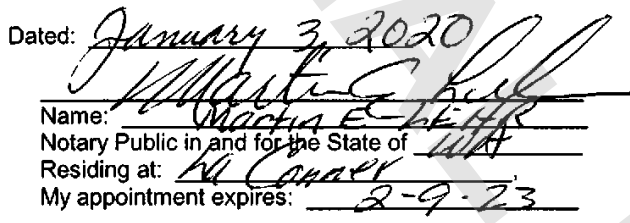 Dated: January 3, 2020
Martin E Lehr
Name: Martin E LEHR
Notary Public in and for the State of WA
Residing at: La Conner,
My appointment expires: 2-9-23